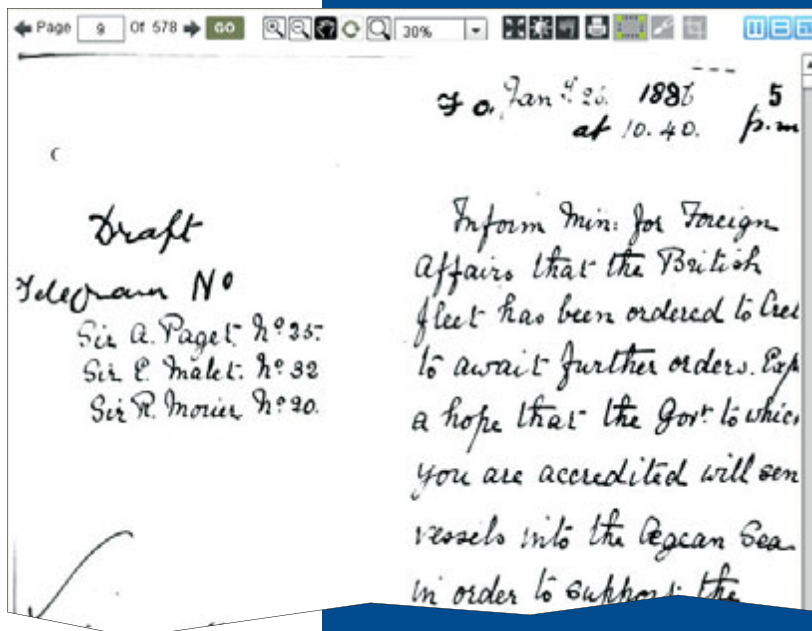 Page 9 Of 578 GO 30%
F.O. Jan. 26. 1886 5
at 10.40. p.m
Draft
Telegram Nº
Sir A. Paget. Nº 35.
Sir E. Malet. Nº 32
Sir R. Morier Nº 20.
Inform Min: for Foreign
Affairs that the British
fleet has been ordered to Cre
to await further orders. Exp
a hope that the Govt. to whic
you are accredited will sen
vessels into the Ægean Sea
in order to support the